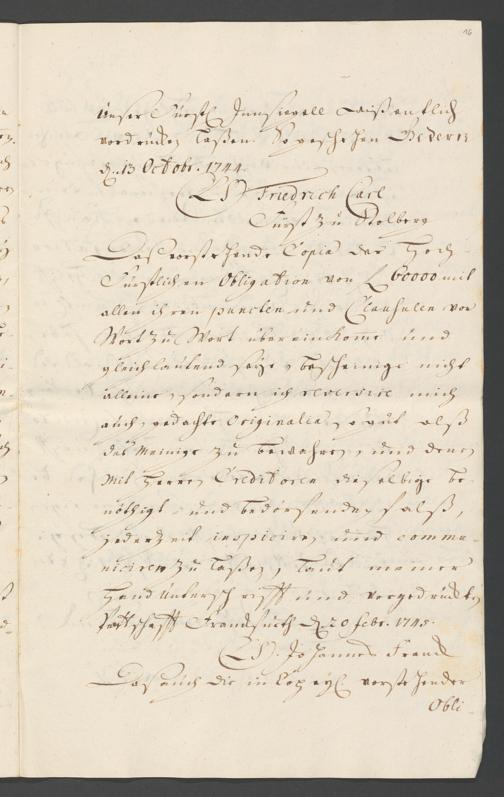 16
Unser Fürstl. Innsiegell wißentlich
vordrucken Laßen. So geschehen Gedern
d. 13 Octobr. 1744.
(LS) Friedrich Carl
Fürst zu Stolberg
Das vorstehende Copia der Hoch-
Fürstlichen Obligation von f 60000 mit
allen ihren puncten und Clausulen von
Wort zu Wort übereinkome und
gleichlautend seÿe, bescheinige nicht
alleine, sondern ich reversire mich
auch, gedachte Originalia, so gut alß
das Meinige zu bewahren, und denen
Mit Herren Creditoren dieselbige be-
nöthigt und bedörfenden falß,
jederzeit inspiciren und commu-
niciren zu Laßen, Laut meiner
Hand Unterschrifft und vorgedruckten
Pettschafft Franckfurth d. 20 febr. 1745.
(LS) Johannes Franck
Daß auch die in Copeyl. vorstehender
Obli-